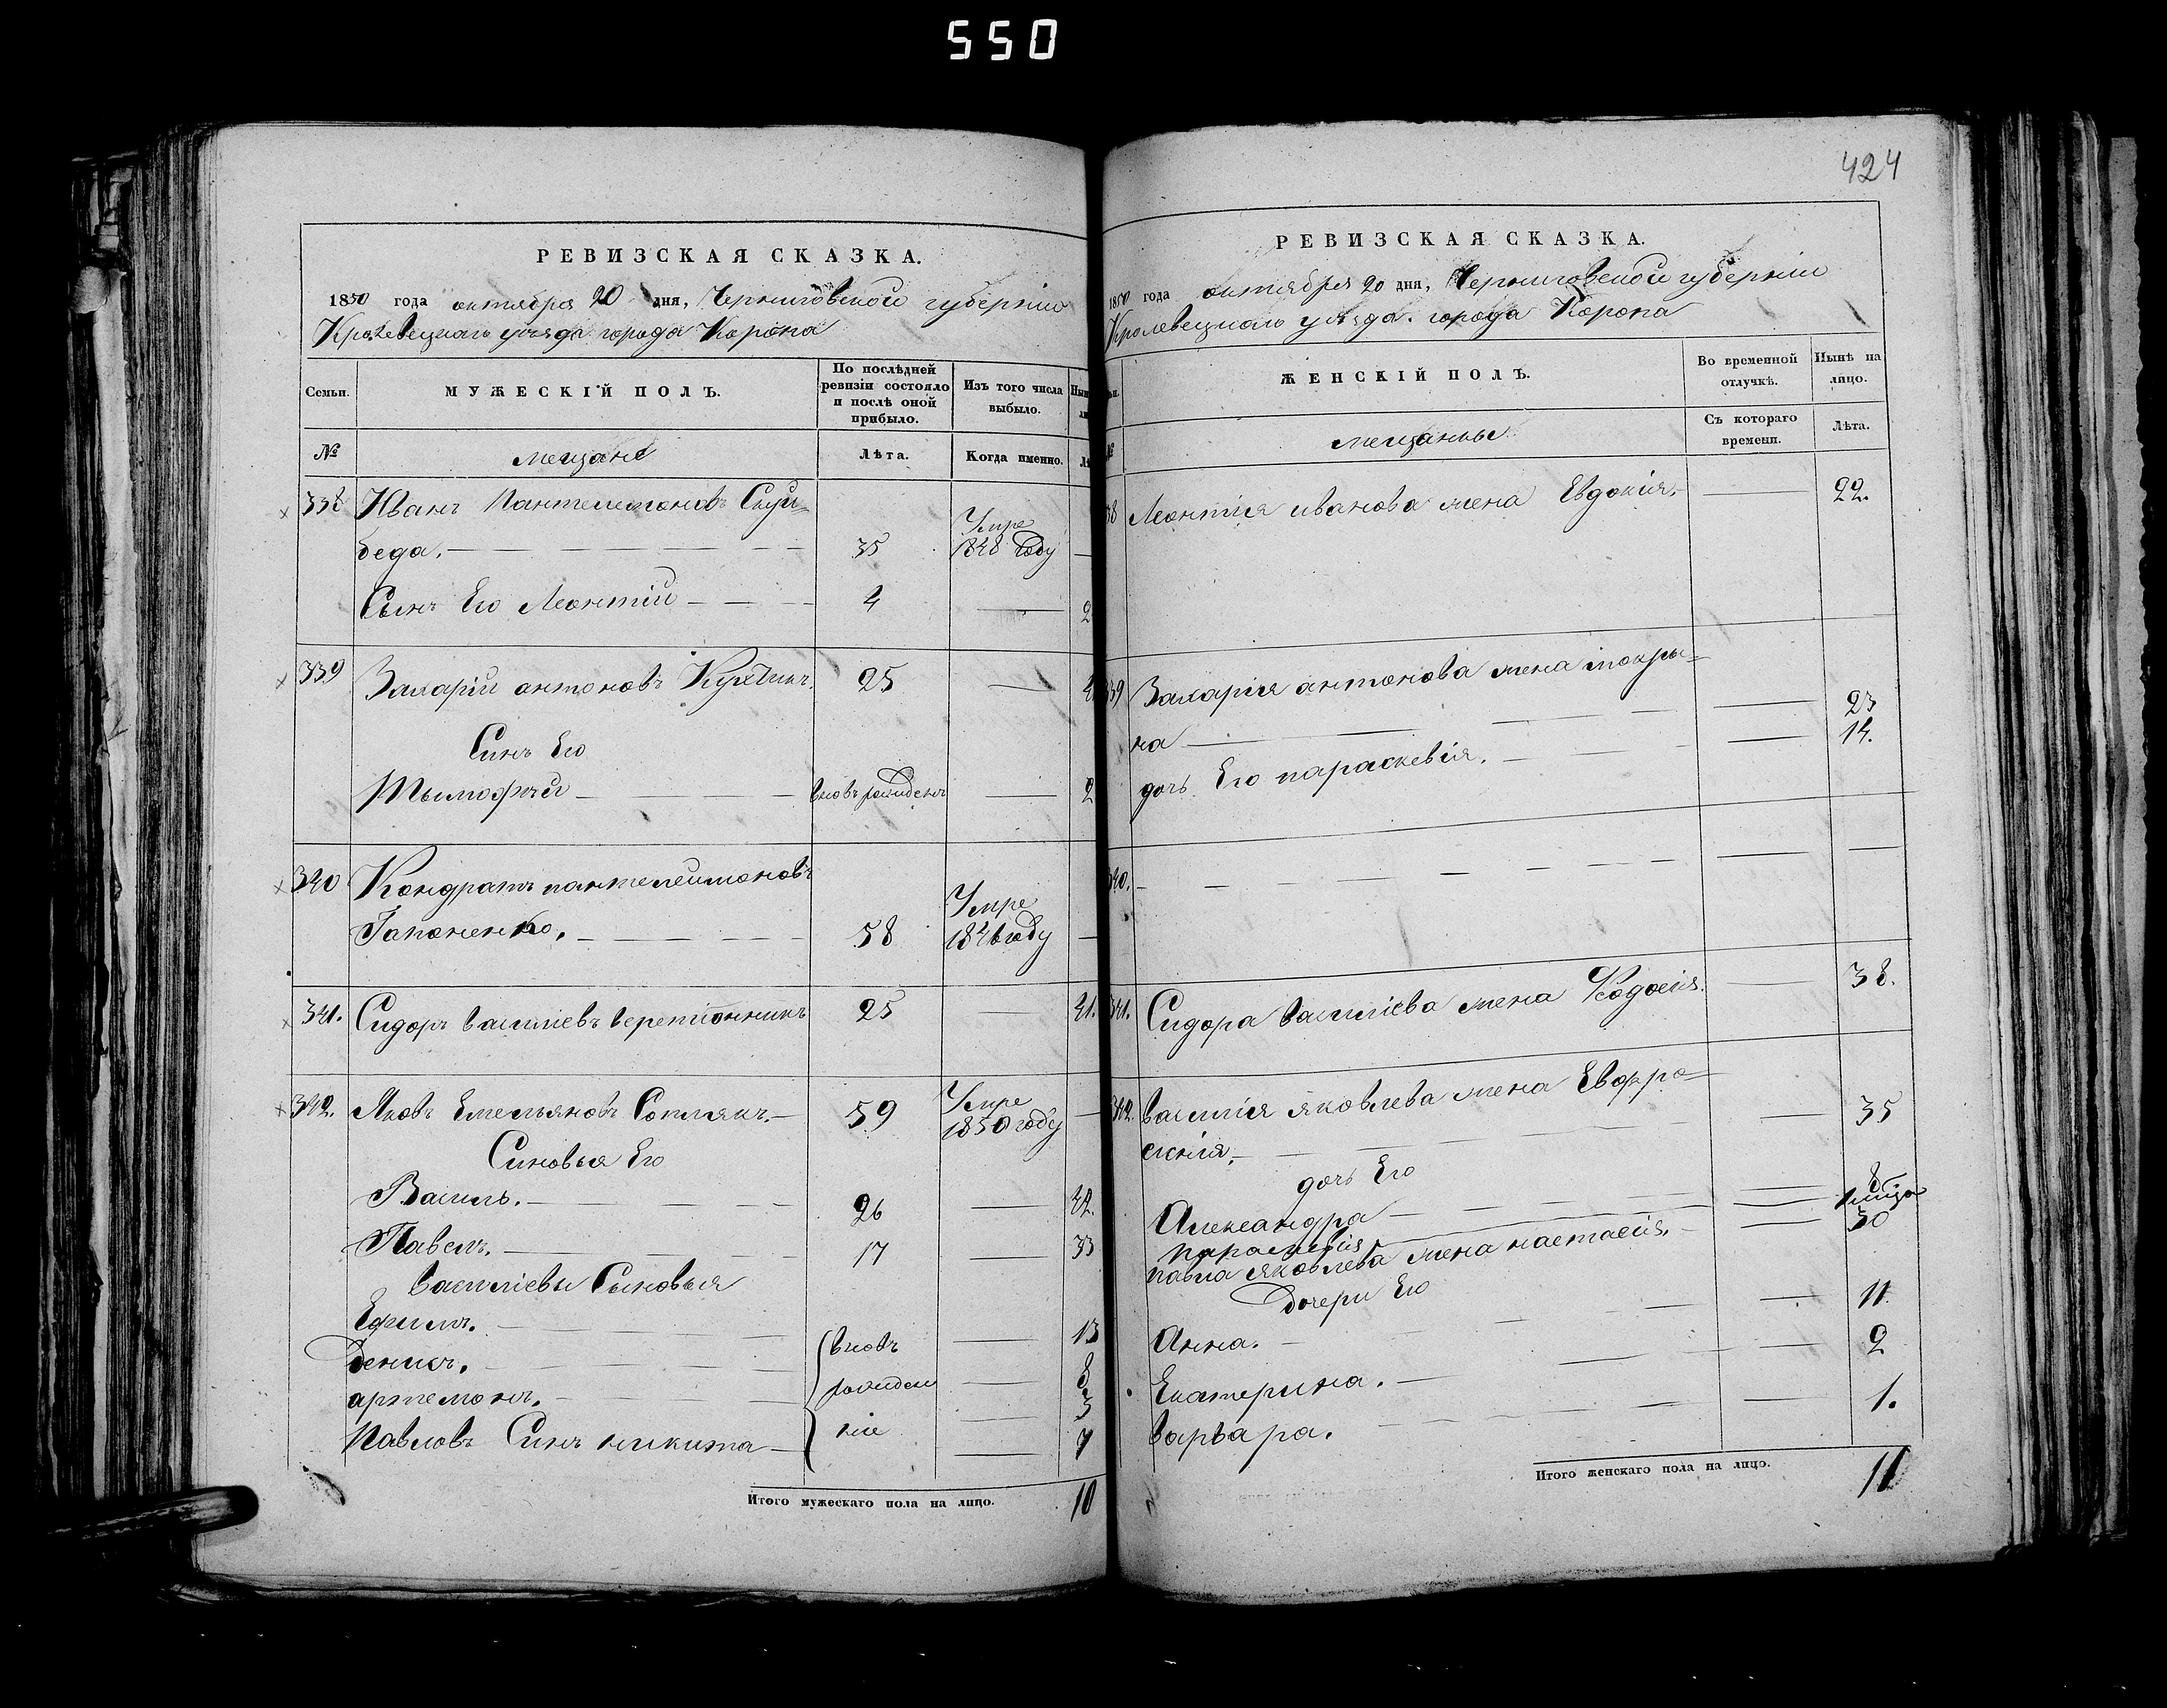 550
РЕВИЗСКАЯ СКАЗКА.
1850 года октября 20 дня, Черниговской губерніи
Кролевецкаго уѣзда города Коропа
Семьи.
МУЖЕСКІЙ ПОЛЪ.
По послѣдней ревизіи состояло и послѣ оной прибыло.
Изъ того числа выбыло.
№
мещане
Лѣта.
Когда именно.
338 Иванъ Пантелимоновъ
беда. 35 Умре 1848 году
Сынъ Его Леонтій 4
339 Захарій антоновъ 25
Синъ Его
Тымофѣй вновь рожденъ
340 Кондратъ пантелеимоновъ
Гапоненко. 58 Умре 1846 году
341. Сидоръ василіевъ веретіонникъ 25 41.
342. Яковъ Емельяновъ Сопляк. 59 Умре 1850 году
Синовья Его
Василь. 26 42.
Павелъ. 17 33
василіевы Сыновья
Ефимъ. 13
денисъ. 8
артемонъ. 3
Павловъ Синъ никита 7
вновь рожденніе
Итого мужескаго пола на лицо. 10
424
РЕВИЗСКАЯ СКАЗКА.
1850 года октября 20 дня, Черниговской губерніи
Кролевецкаго уѣзда города Коропа
ЖЕНСКІЙ ПОЛЪ.
Во временной отлучкѣ.
Нынѣ на лицо.
мещанки
Съ котораго времени.
Лѣта.
38 Леонтія иванова жена Евдокія. 22.
39 Захарія антонова жена мокры-
на 23
дочь Его параскевія. 14.
340.
341. Сидора василіева жена Феодосія. 38.
342. василія яковлева жена Евфро-
синія. 35
дочь Его
Александра 8
параскевія
павла яковлева жена настасія. 30
Дочери Его
Анна. 11
Екатерина. 2
варвара. 1.
Итого женскаго пола на лицо. 11